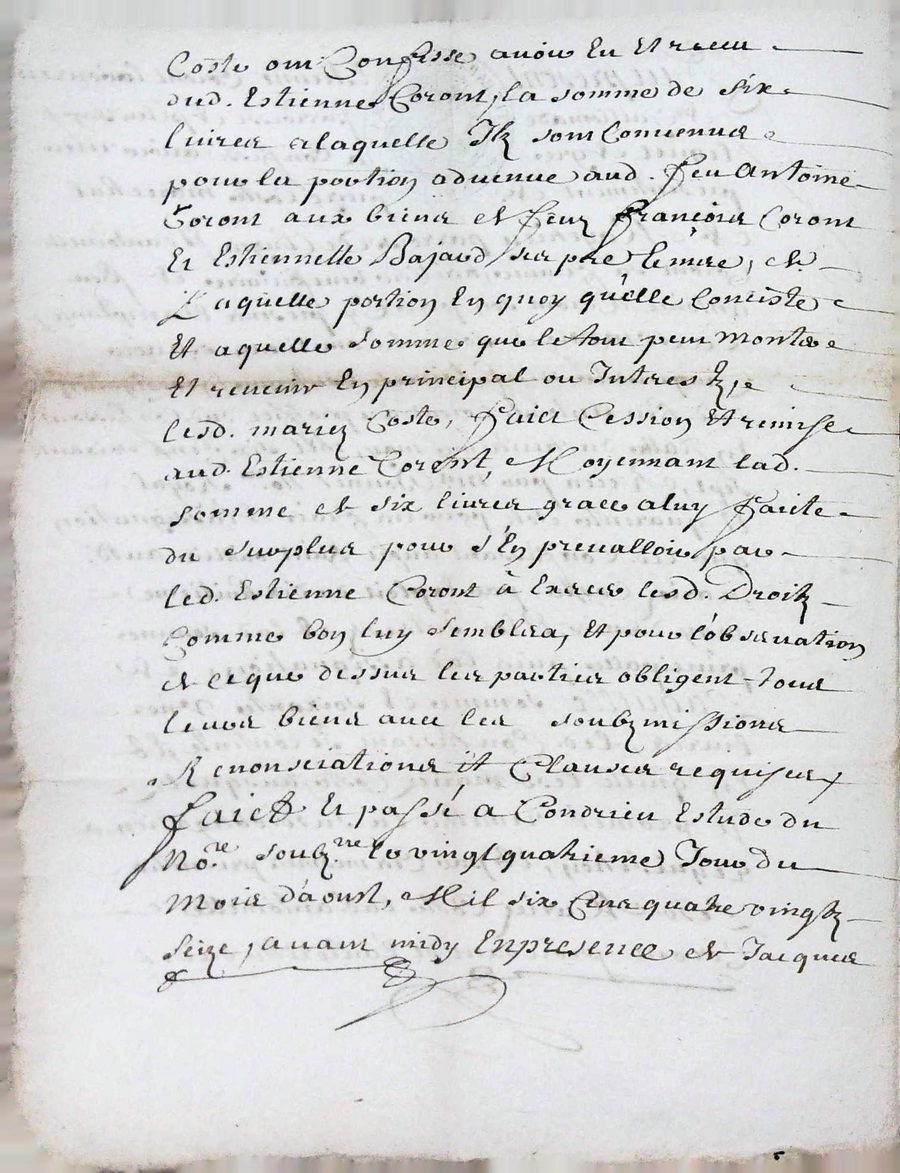 Coste ont Confesse avoir Eu Et receu
dud. Estienne Coront, la somme de six
livres a laquelle Ilz sont Convenus
pour la portion advenue aud. feu Antoine
Coront aux biens de feuz François Coront
Et Estiennette Bajard ses pere & mere, de
Laquelle portion En quoy qu'elle Conciste
Et a quelle somme que le tout peut monter
Et revenir En principal ou Intrestz,
lesd. mariez Coste, faict Cession Et remise
aud. Estienne Coront, Moyennant lad.
somme de six livres grace a luy faicte
du surplus pour s'En prevalloir par
led. Estienne Coront à Exercer lesd. Droitz
Comme bon luy semblera, Et pour l'observation
de ce que dessus les parties obligent tous
leurs biens avec les soubzmissions
Renonsciations Et Clauses requises
faict Et passé a Condrieu Estude du
No.re soubz.né le vingt quatrieme Jour du
Mois d'aoust, Mil six Cens quatre vingtz
seize, avant midy En presence de Jacques